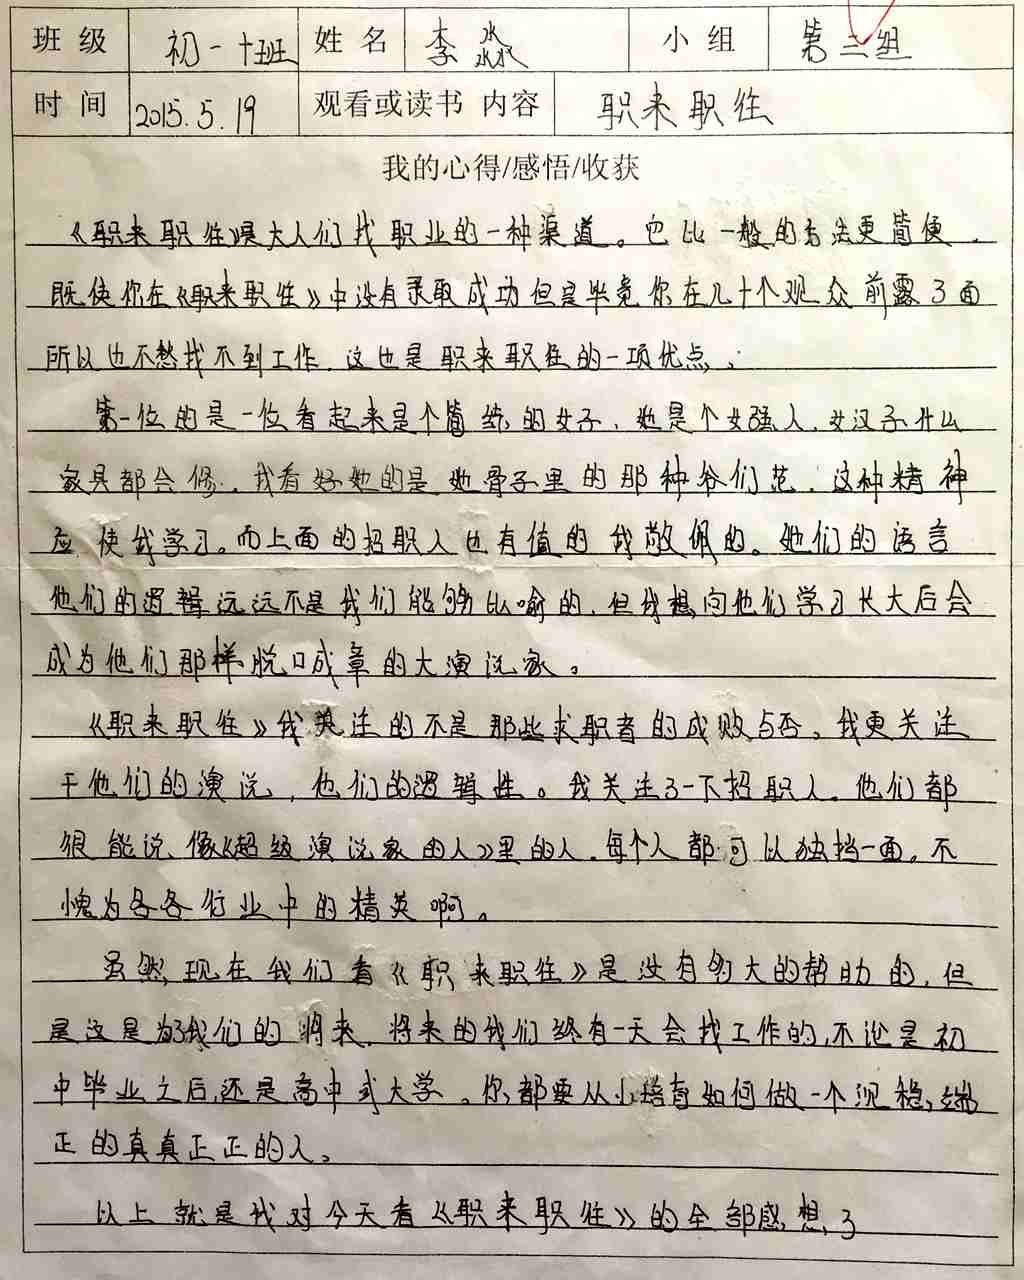 班级 初一十班 姓名 李淼 小组 第三组
时间 2015.5.19 观看或读书内容 职来职往
我的心得/感悟/收获
《职来职往》是大人们找职业的一种渠道。它比一般的方法更简便.
既使你在《职来职往》中没有录取成功但是毕竟你在几十个观众前露了面
所以也不愁找不到工作.这也是职来职往的一项优点.
第一位的是一位看起来是个简练的女子.她是个女强人.女汉子什么
家具都会修.我看好她的是她骨子里的那种爷们范.这种精神
应使我学习。而上面的招职人也有值的我敬佩的。她们的语言
他们的逻辑远远不是我们能够比喻的.但我想向他们学习长大后会
成为他们那样脱口成章的大演说家。
《职来职往》我关注的不是那些求职者的成败与否。我更关注
于他们的演说,他们的逻辑性。我关注了一下招职人.他们都
很能说、像《超级演说家的人》里的人.每个人都可以独挡一面。不
愧为各各行业中的精英啊。
虽然,现在我们看《职来职往》是没有多大的帮助的.但
是这是为了我们的将来.将来的我们终有一天会找工作的,不论是初
中毕业之后,还是高中或大学。你都要从小培育如何做一个沉稳,端
正的真真正正的人。
以上就是我对今天看《职来职往》的全部感想了